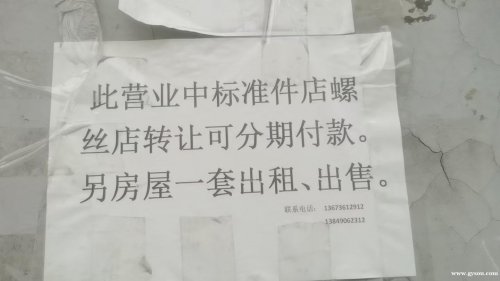 此营业中标准件店螺
丝店转让可分期付款。
另房屋一套出租、出售。
联系电话： 13673612912
13849062312
www.gysou.com